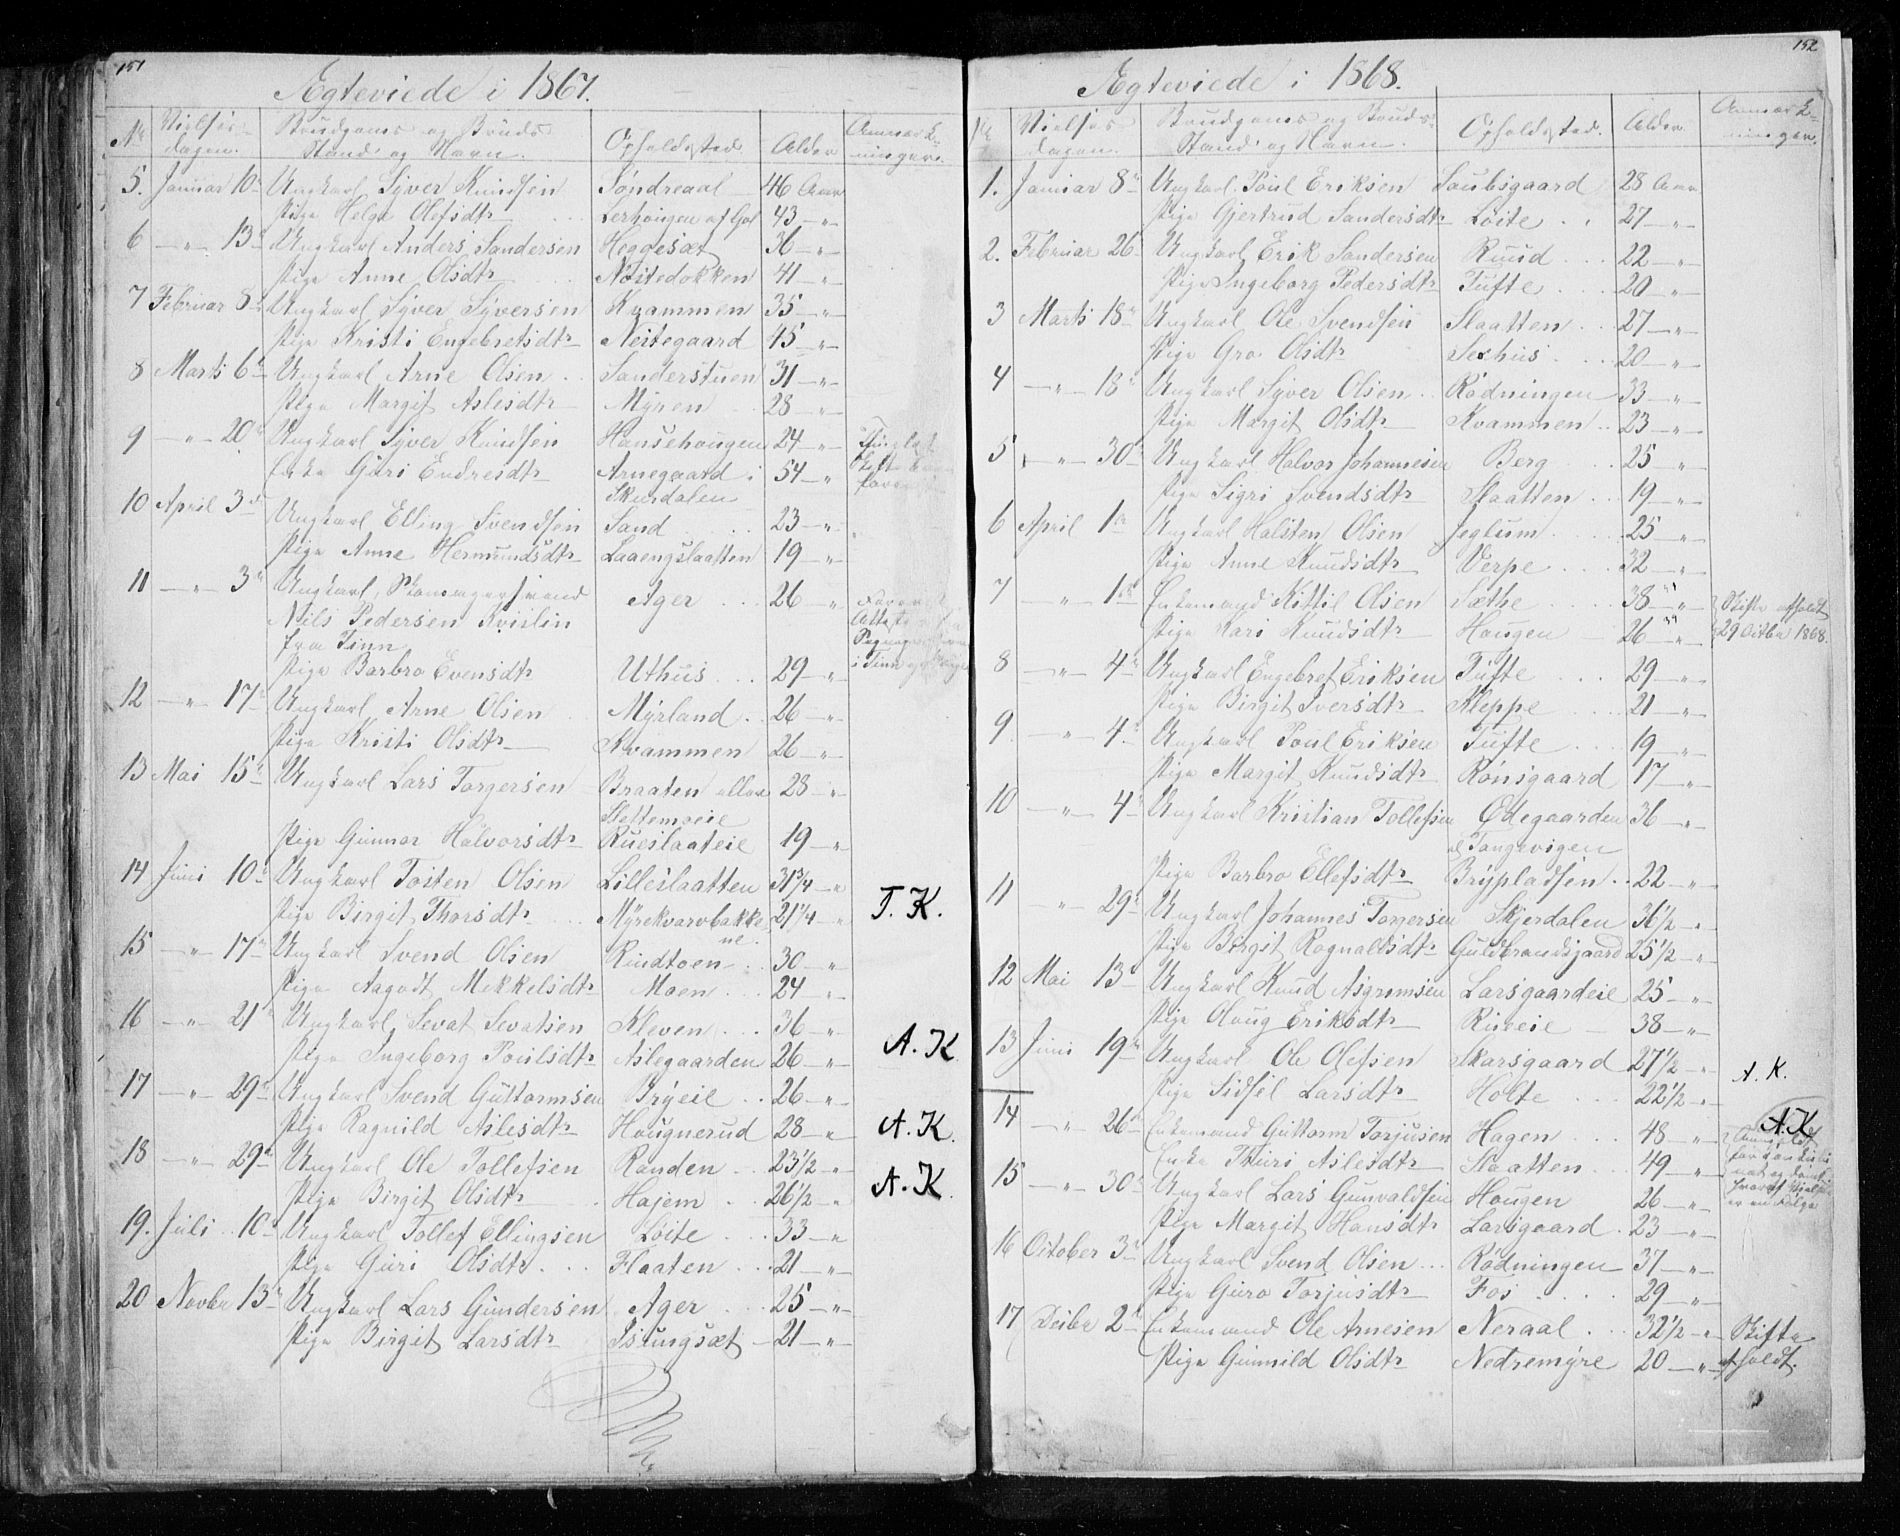 151
Ægteviede i 1867.
No Vielses- Brudgoms og Bruds Opholdssted Alder Anmærk-
dagen. Stand og Navn. ninger.
5. Januar 10de Ungkarl Syver Knudsen Søndreaal 46 Aar
Pige Helge Olefsdtr Lerhougen af Gol 43 —"—
6 —"— 13de Ungkarl Anders Sandersen Heggesæt 36 —"—
Pige Anne Olsdtr Nøstedokken 41 —"—
7 Februar 8de Ungkarl Syver Syversen Kvammen 35 —"—
Pige Kristi Engebretsdtr Neitegaard 45 —"—
8 Marts 6te Ungkarl Arne Olsen Sanderstuen 31 —"—
Pige Margit Aslesdtr Myren 28 —"—
9 —"— 20de Ungkarl Syver Knudsen Hansehougen 24 —"—
Enke Guri Endresdtr Arnegaard i 54 —"—
Skurdalen
10 April 3die Ungkarl Elling Svendsen Sand 23 —"—
Pige Anne Hermundsdtr Laaengslaatten 19 —"—
11 —"— 3die Ungkarl, Skomagersvend Ager 26 —"—
Nils Pedersen Kvislin
fra Tinn
i Tinn
Pige Barbro Evensdtr Uthus 29 —"—
12 —"— 17de Ungkarl Arne Olsen Myrland 26 —"—
Pige Kristi Olsdtr Kvammen 26 —"—
13 Mai 15de Ungkarl Lars Torgersen Braaten eller 28 —"—
Slettemoeie
Pige Gunnor Halvorsdtr Rueslaateie 19 —"—
14 Juni 10de Ungkarl Tosten Olsen Lilleslaatten 31 3/4 —"—
Pige Birgit Thorsdtr Myrekvarvbakke 21 1/4 —"— T. K.
ne.
15 —"— 17de Ungkarl Svend Olsen Rudtoen 30 —"—
Pige Aagodt Mekkelsdtr Moen 24 —"—
16 —"— 21de Ungkarl Sevat Sevatsen Kleven 36 —"—
Pige Ingeborg Poulsdtr Aslegaarden 26 —"— A. K
17 —"— 29de Ungkarl Svend Guttormsen Bryeie 26 —"—
Pige Ragnild Aslesdtr Hougnerud 28 —"— A. K.
18 —"— 29de Ungkarl Ole Tollefsen Randen 23 1/2 —"—
Pige Birgit Olsdtr Hajem 26 1/2 —"— A. K.
19. Juli 10de Ungkarl Tollef Ellingsen Løite 33 —"—
Pige Guri Olsdtr Flaaten 21 —"—
20 Novbr 13de Ungkarl Lars Gundersen Ager 25 —"—
Pige Birgit Larsdtr Islungsæt 21 —"—
152
Ægteviede i 1868.
No Vielses- Brudgoms og Bruds- Opholdssted. Alder Anmærk-
dagen. Stand og Navn. ninger.
1. Januar 8de Ungkarl Poul Eriksen Saubsgaard 28 Aar
Pige Gjertrud Sandersdtr Løite 27 —"—
2. Februar 26 Ungkarl Erik Sandersen Ruud 22 —"—
Pige Ingeborg Pedersdtr Tufte 20 —"—
3 Marts 18de Ungkarl Ole Svendsen Slaatten 27 —"—
Pige Gro Olsdtr Sexhus 20 —"—
4 —"— 18de Ungkarl Syver Olsen Rødningen 33 —"—
Pige Margit Olsdtr Kvammen 23 —"—
5 —"— 30de Ungkarl Halvor Johannesen Berg 25 —"—
Pige Sigri Svendsdtr Slaatten 19 —"—
6 April 1ste Ungkarl Halsten Olsen Jeglum 25 —"—
Pige Anne Knudsdtr Verpe 32 —"—
7 —"— 1ste Enkemand Kittil Olsen Sæthe 38 —"— Skifte afholdt
Pige Kari Knudsdtr Hougen 26 —"— 29 Octbr 1868.
8 —"— 4de Ungkarl Engebret Eriksen Tufte 29 —"—
Pige Birgit Iversdtr Kleppe 21 —"—
9. —"— 4de Ungkarl Poul Eriksen Tufte 19 —"—
Pige Margit Knudsdtr Rønsgaard 17 —"—
10 —"— 4de Ungkarl Kristian Tollefsen Ødegaarden 36 —"—
al Tangevigen
Pige Barbro Ellefsdtr Brypladsen 22 —"—
11 —"— 29de Ungkarl Johannes Torgersen Skjerdalen 36 1/2 —"—
Pige Birgit Ragnaldsdtr Guldbrandsgaard 25 1/2 —"—
12 Mai 13de Ungkarl Knud Asgrimsen Larsgaardeie 25 —"—
Pige Olaug Eriksdtr Rueeie 38 —"—
13 Juni 19de Ungkarl Ole Olefsen Skarsgaard 27 1/2 —"—
Pige Sidsel Larsdtr Holte 22 1/2 —"— A. K.
14 —"— 26de Enkemand Guttorm Torjusen Hagen 48 —"— A. K
Enke Thuri Aslesdtr Slaatten 49 —"—
15 —"— 30de Ungkarl Lars Gunvaldsen Hougen 26 —"—
Pige Margit Hansdtr Larsgaard 23 —"—
16 October 3die Ungkarl Svend Olsen Rødningen 37 —"—
Pige Guro Torjusdtr Fos 29 —"—
17 Decbr 2den Enkemand Ole Arnesen Neraal 32 1/2 —"— Skifte
Pige Gunnild Olsdtr Nedremyre 20 —"— afholdt.